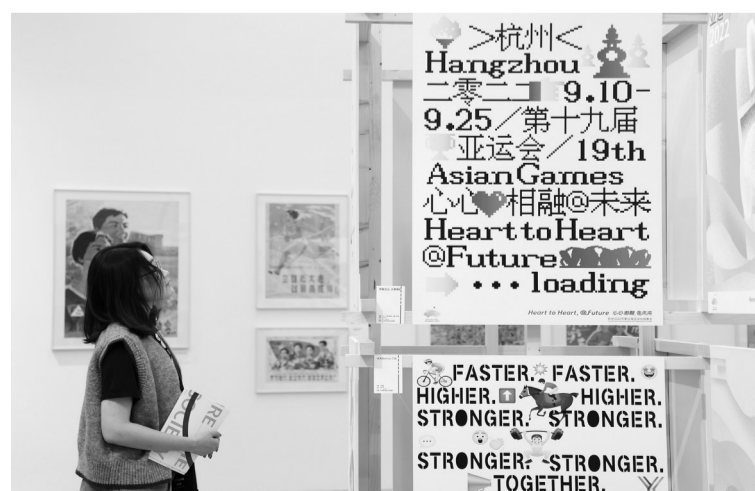 >杭州<
Hangzhou
二零二二 9.10-
9.25/第十九届
亚运会/19th
Asian Games
心心❤相融@未来
Heart to Heart
@Future
••• loading
Heart to Heart, @Future 心心相融 @未来
FASTER. FASTER.
HIGHER. HIGHER.
STRONGER. STRONGER.
STRONGER. STRONGER.
TOGETHER.
2022
SOCIE